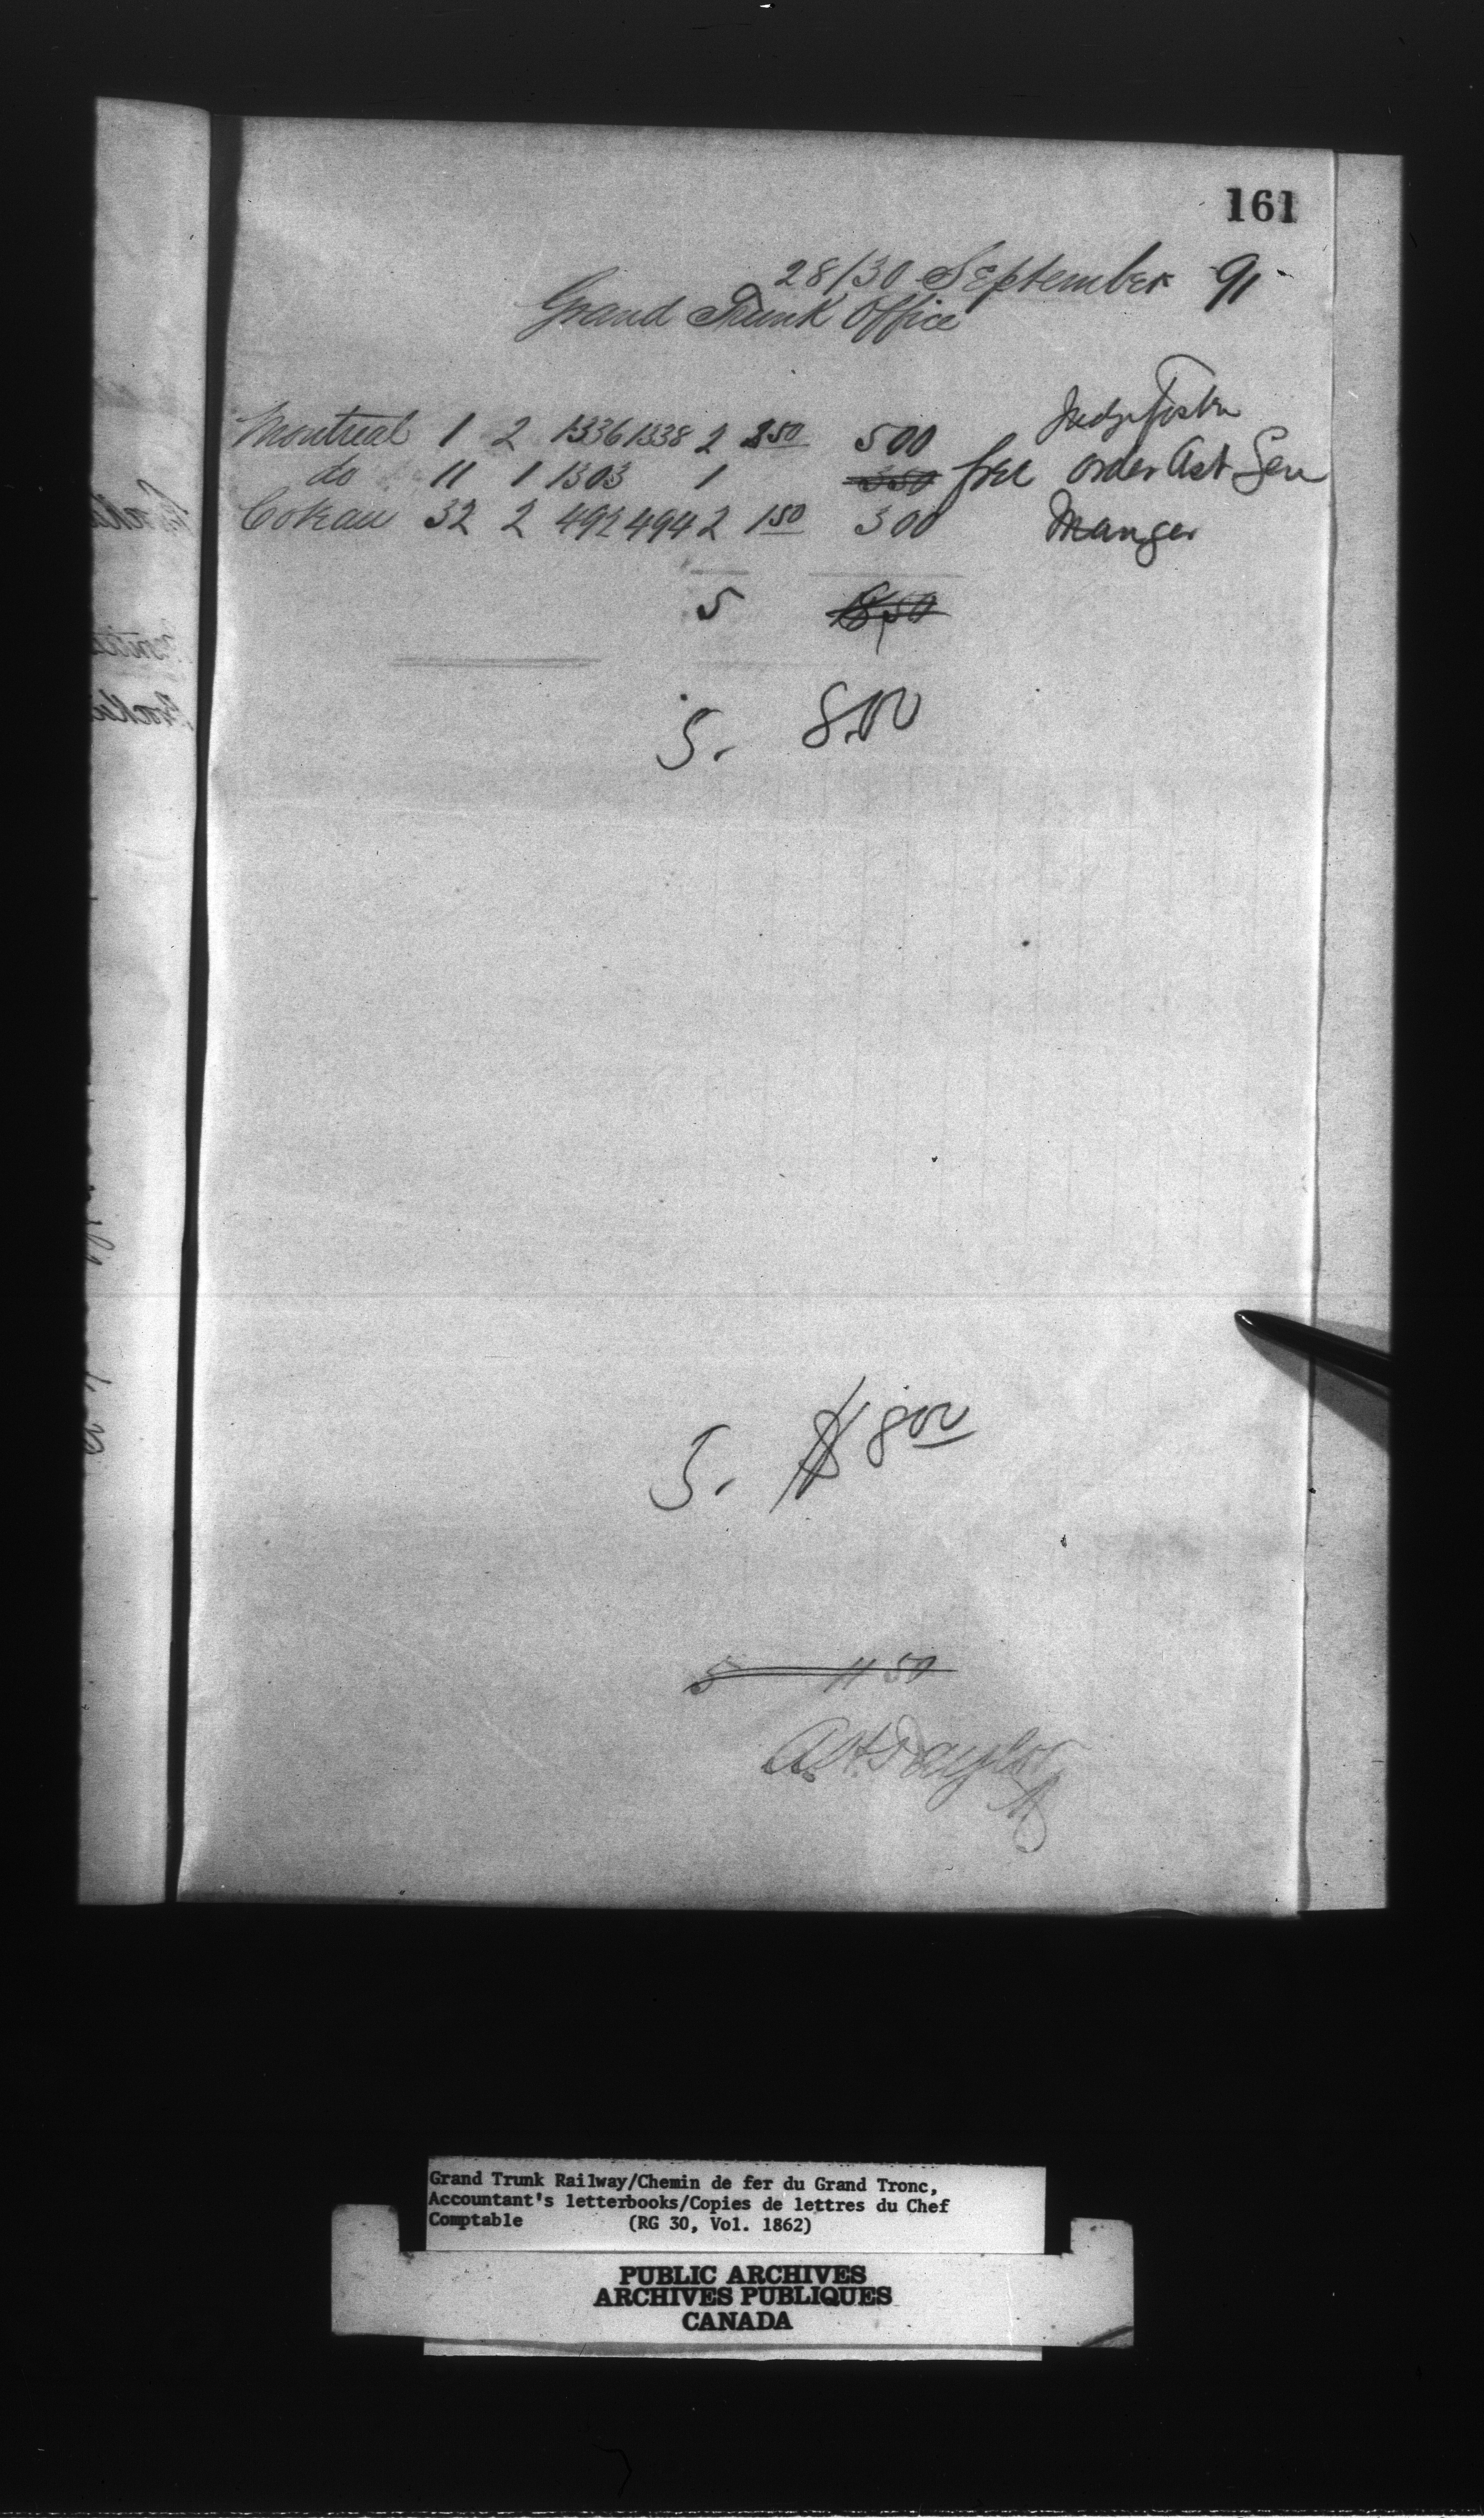 161
28/30 September 91
Grand Trunk Office
Judge Foster
Montreal 1 2 1336 1338 2 2 50 5 00
do 11 1 1303 1 3 50 free order Ast Gen
Coteau 32 2 492 494 2 1 50 3 00 Manger
5
5. 8.00
5. $ 8 00
5 11 50
A. H. Taylor
Grand Trunk Railway/Chemin de fer du Grand Tronc,
Accountant's letterbooks/Copies de lettres du Chef
Comptable (RG 30, Vol. 1862)
PUBLIC ARCHIVES
ARCHIVES PUBLIQUES
CANADA